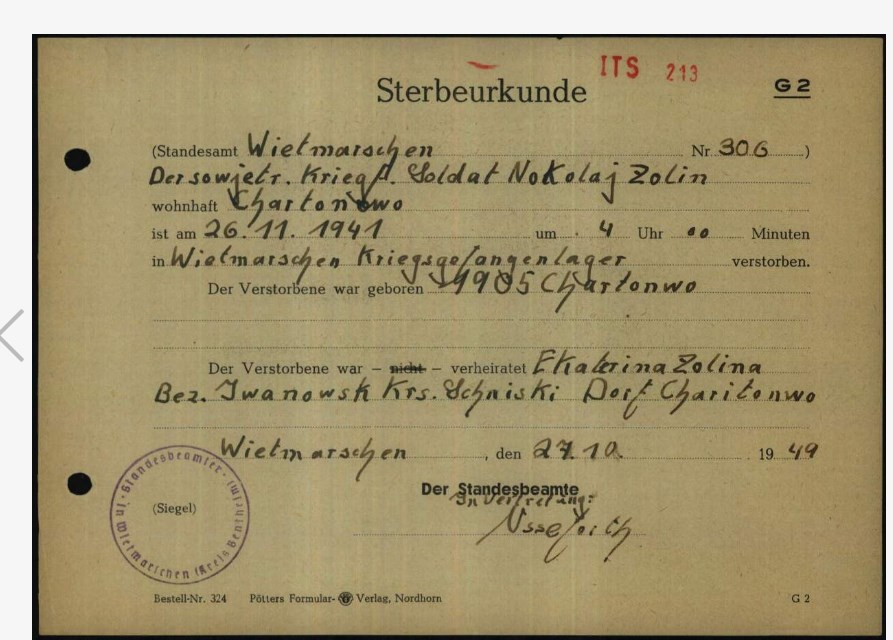 ITS 213
Sterbeurkunde
G 2
(Standesamt Wietmarschen Nr. 306)
Der sowjetr. Kriegsf. Soldat Nokolaj Zolin
wohnhaft Chartonowo
ist am 26. 11. 1941 um 4 Uhr 00 Minuten
in Wietmarschen Kriegsgefangenlager verstorben.
Der Verstorbene war geboren 1905 Chartonwo
Der Verstorbene war – nicht – verheiratet Ekaterina Zolina
Bez. Iwanowsk Krs. Schniski Dorf Charitonwo
Wietmarschen, den 27. 10. 1949
Der Standesbeamte
In Vertretung:
(Siegel)
Standesbeamter in Wietmarschen (Kreis Bentheim)
Bestell-Nr. 324 Pötters Formular-Verlag, Nordhorn
G 2